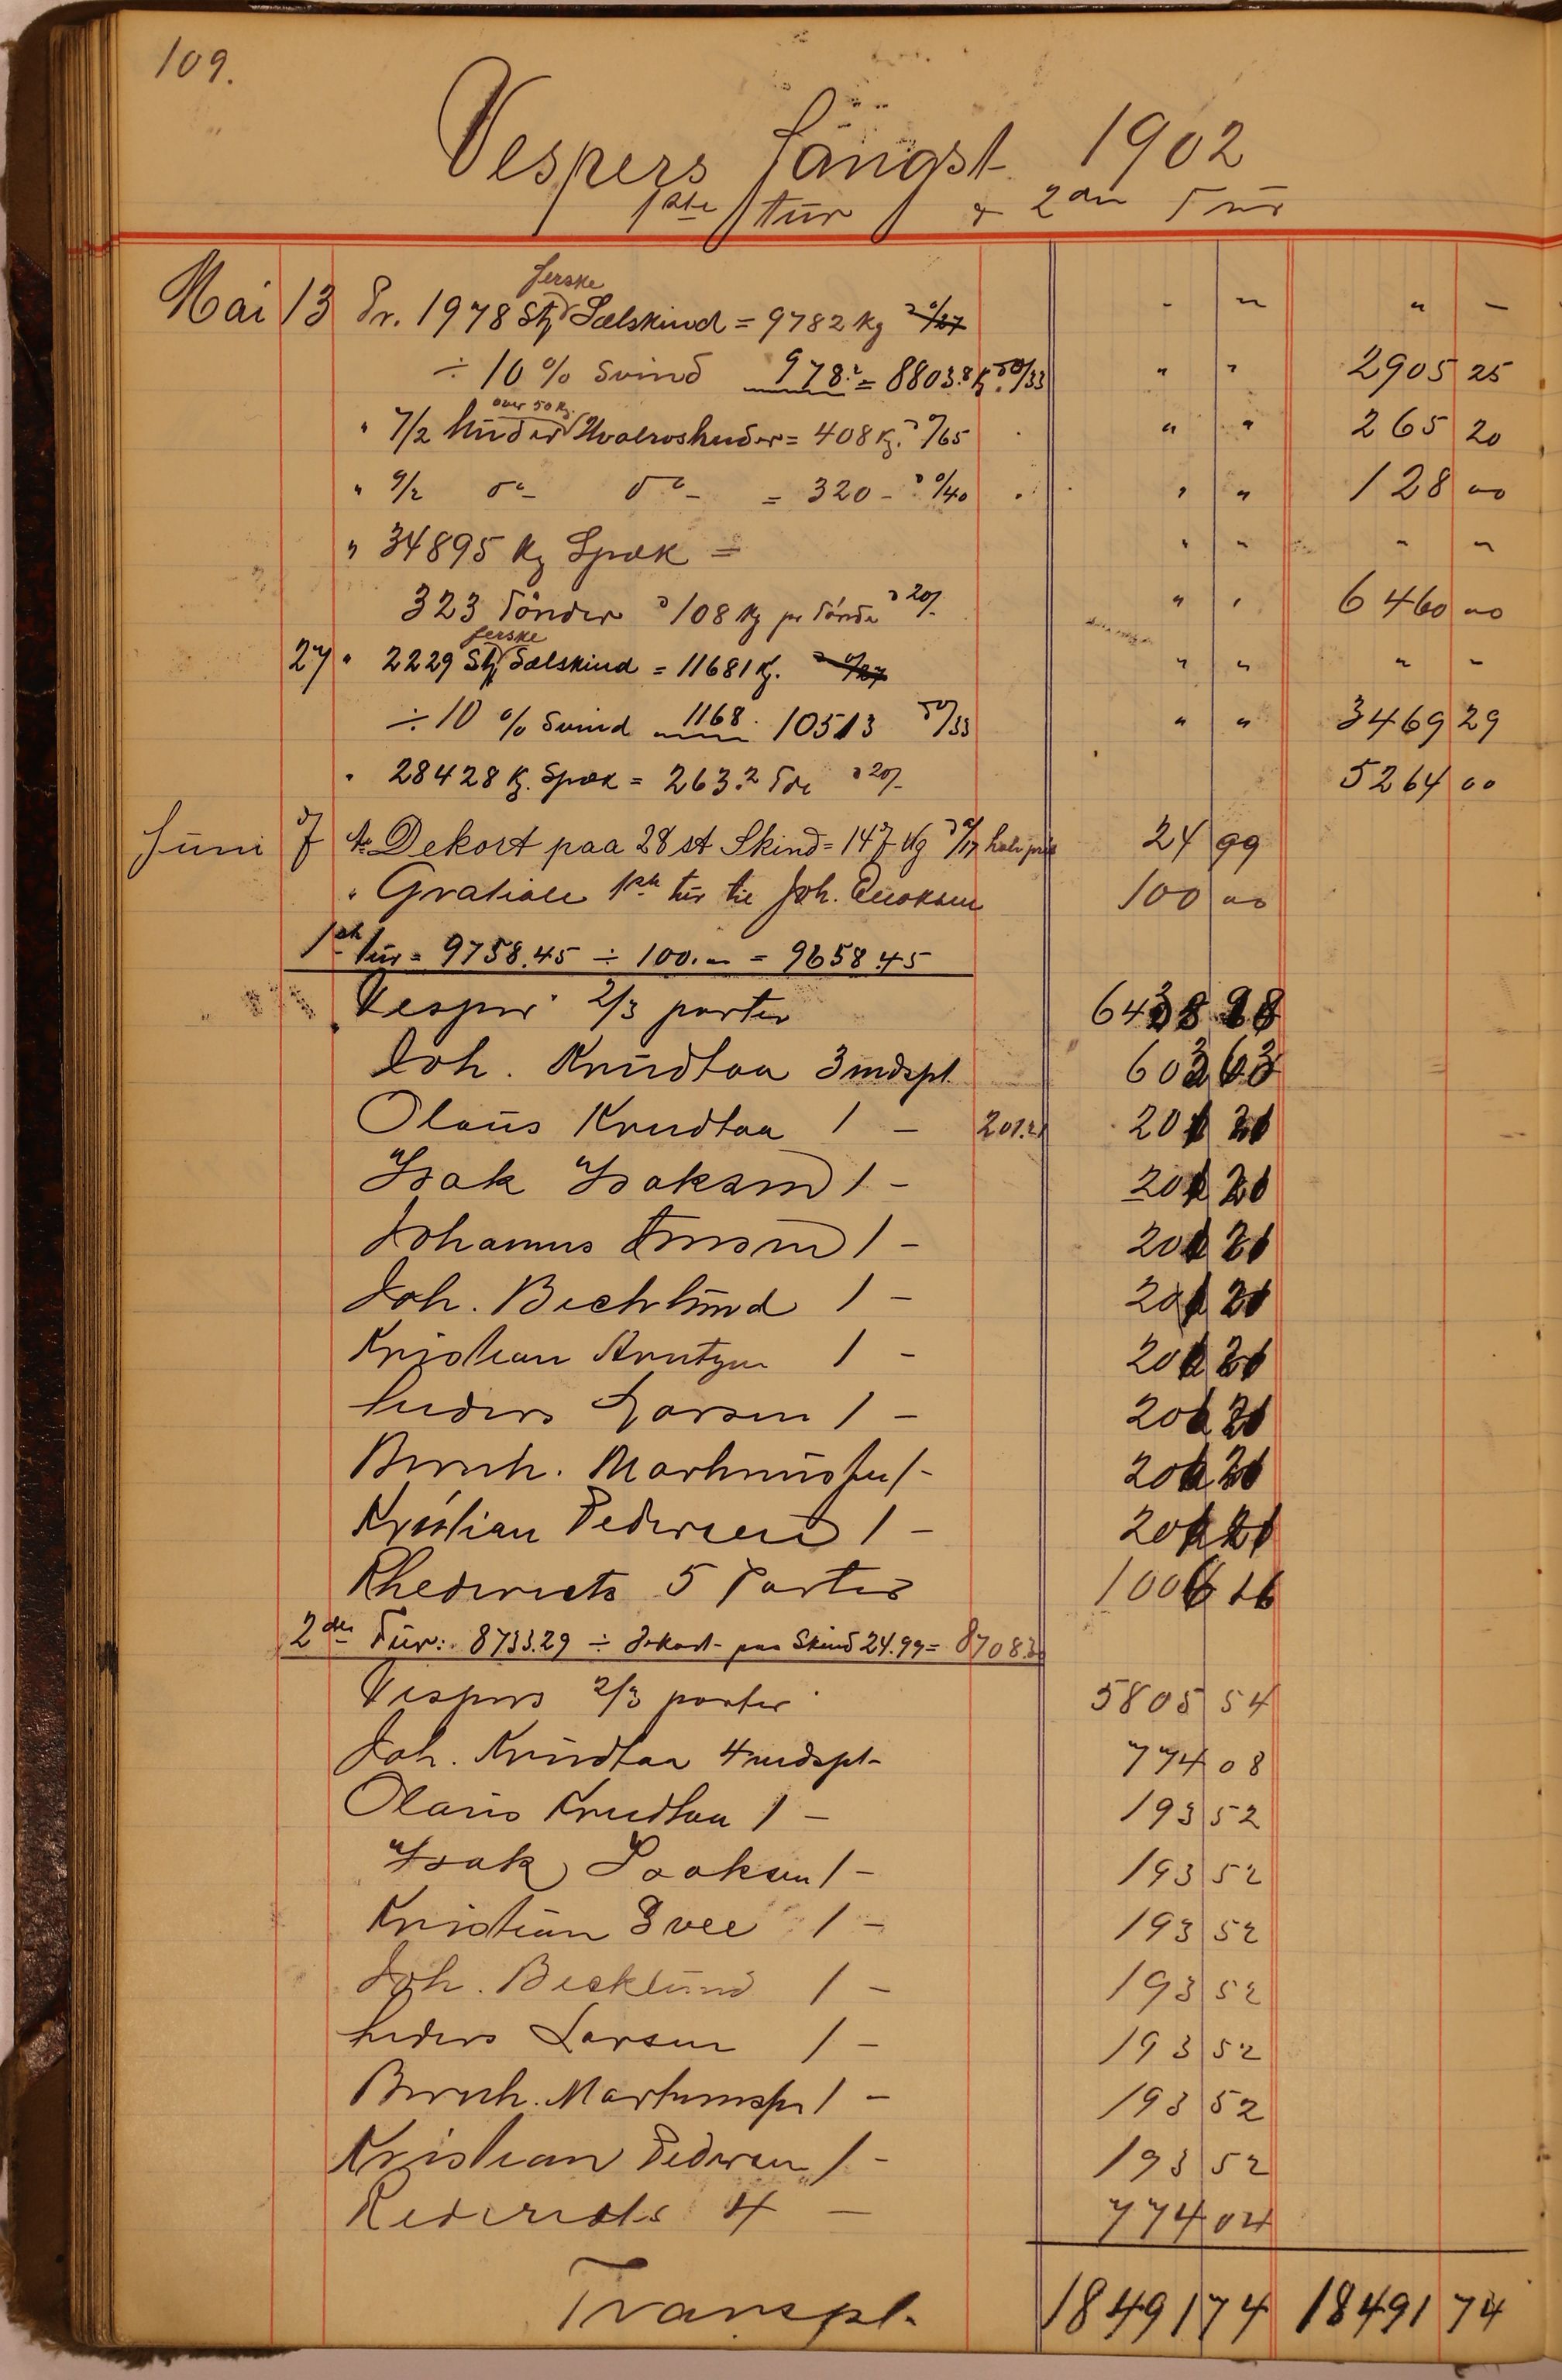 109.
Vespers fangst 1902
1ste tur & 2den Tur
Mai 13 Pr. 1978 St. ferske Sælskind = 9782 kg
÷ 10 % Svind 978.2 = 8803.8 K. à 0/33 " " 2905 25
" 7/2 huder over 50 Kg. Hvalroshuder = 408 K. à 0/65 " " 265 20
" 9/2 do do = 320 - à 0/40 " " 128 00
" 34895 Kg Spæk = " " " "
323 Tönder à 108 Kg pr Tönde à 20/- " " 6460 00
27 " 2229 St. ferske Sælskind = 11681 K. " " " "
÷ 10 % Svind 1168. 10513 à 0/33 " " 3469 29
" 28428 K. Spæk = 263.2 Tde à 20/- 5264 00
Juni 7 Dekort paa 28 st Skind = 147 Kg à 0/17 halv pris 24 99
" Gratiale 1ste tur til Joh. 100 00
1ste tur = 9758.45 ÷ 100.00 = 9658.45
Vespers 2/3 parter 6438 98
Joh. Knudtaa 3 mdspt. 603 63
Olaus Knudtaa 1 - 201.21 201 21
Isak Isaksen 1 - 201 21
Johannes 1 - 201 21
Joh. Becklund 1 - 201 21
Kristian Arntzen 1 - 201 21
Peders Larsen 1 - 201 21
Bernh. Martinussen 1 - 201 21
Kristian Pedersen 1 - 201 21
Rhederiets 5 Parter 1006 16
2den Tur: 8733.29 ÷ dekort paa Skind 24.99 = 8708.30
Vespers 2/3 parter 5805 54
Joh. Knudtaa 4 mdspt- 774 08
Olaus Knudtaa 1 - 193 52
Isak Isaksen 1 - 193 52
Kristian 1 - 193 52
Joh. Becklund 1 - 193 52
Peders Larsen 1 - 193 52
Bernh. Martinussen 1 - 193 52
Kristian Pedersen 1 - 193 52
Rederiets 4 - 774 04
Transpt. 18491 74 18491 74